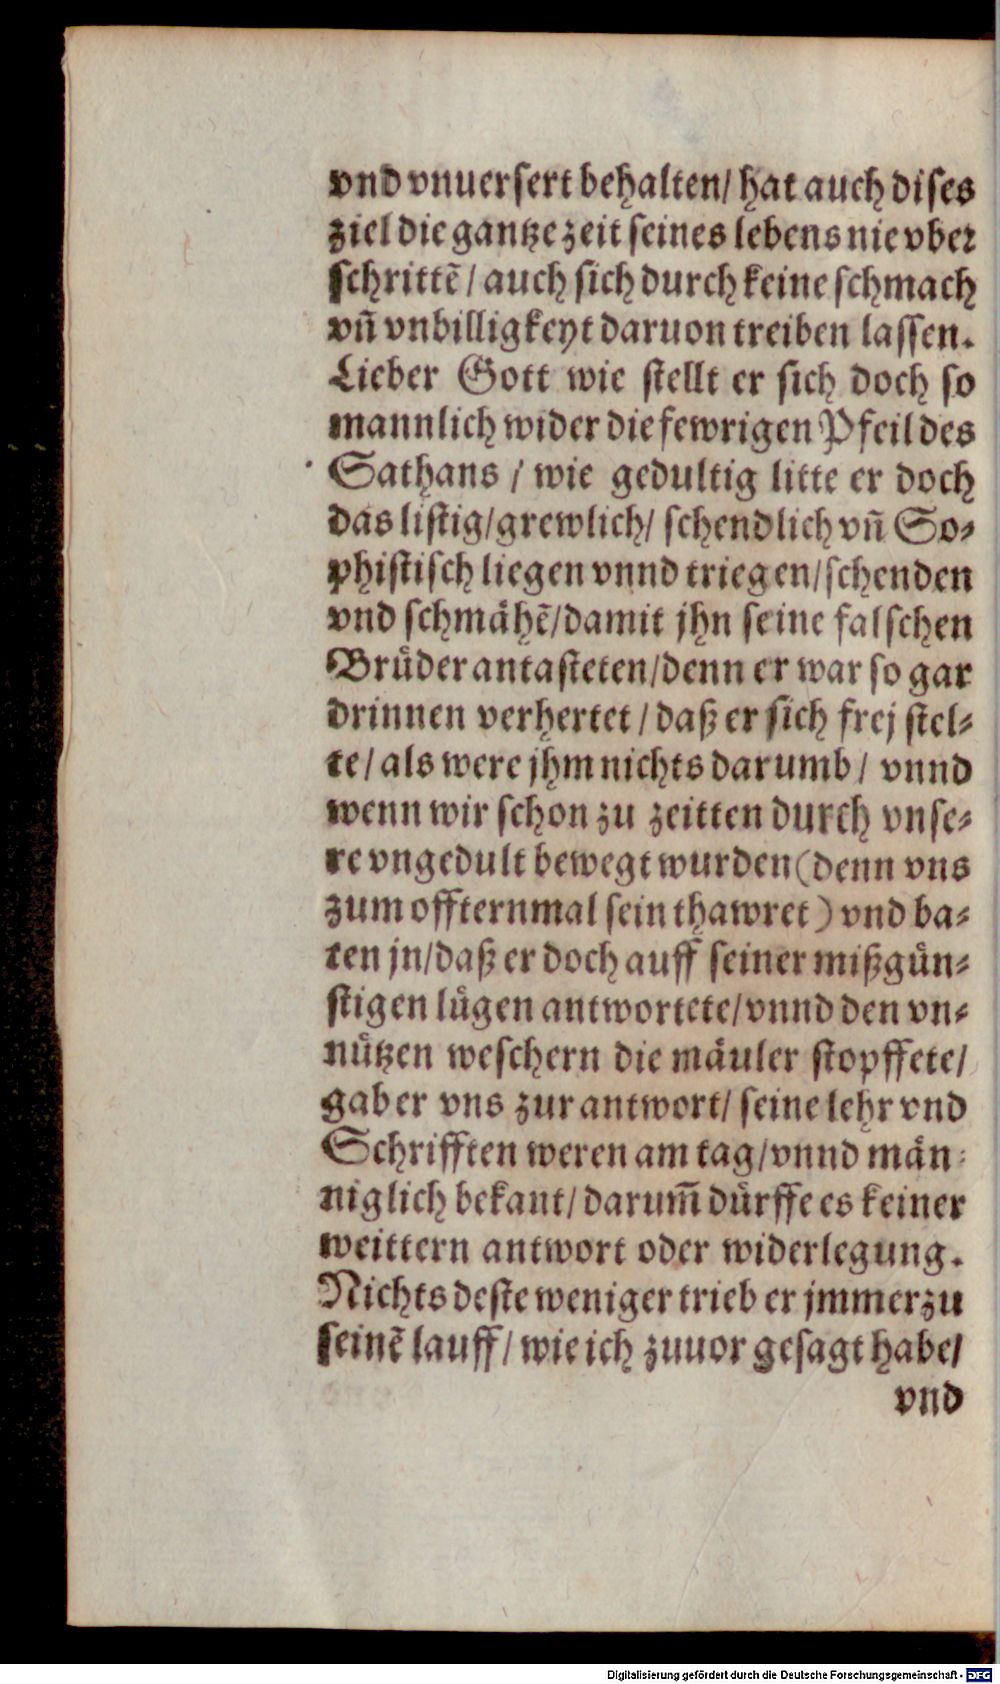 vnd vnuersert behalten/ hat auch dises
ziel die gantze zeit seines lebens nie vber
schrittē / auch sich durch keine schmach
vn̄ vnbilligkeyt daruon treiben lassen.
Lieber Gott wie stellt er sich doch so
mannlich wider die fewrigen Pfeil des
Sathans / wie gedultig litte er doch
das listig/grewlich/ schendlich vn̄ So⸗
phistisch liegen vnnd triegen/schenden
vnd schmähē/damit jhn seine falschen
Brüder antasteten/denn er war so gar
drinnen verhertet / daß er sich frej stel⸗
te/ als were jhm nichts darumb / vnnd
wenn wir schon zu zeitten durch vnse⸗
re vngedult bewegt wurden (denn vns
zum offternmal sein thawret ) vnd ba⸗
ten jn/daß er doch auff seiner mißgün⸗
stigen lügen antwortete/vnnd den vn⸗
nützen weschern die mäuler stopffete/
gab er vns zur antwort/ seine lehr vnd
Schrifften weren am tag/vnnd män⸗
niglich bekant/ darum̄ dürffe es keiner
weittern antwort oder widerlegung.
Nichts deste weniger trieb er jmmerzu
seinē lauff/ wie ich zuuor gesagt habe/
vnd
Digitalisierung gefördert durch die Deutsche Forschungsgemeinschaft - DFG